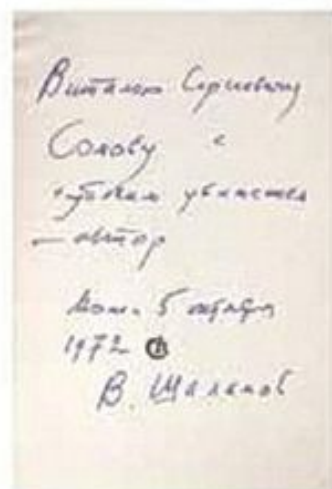 Виталию Сергеевичу
Сомову с
глубоким уважением
— автор
5 октября
1972
В. Шаламов